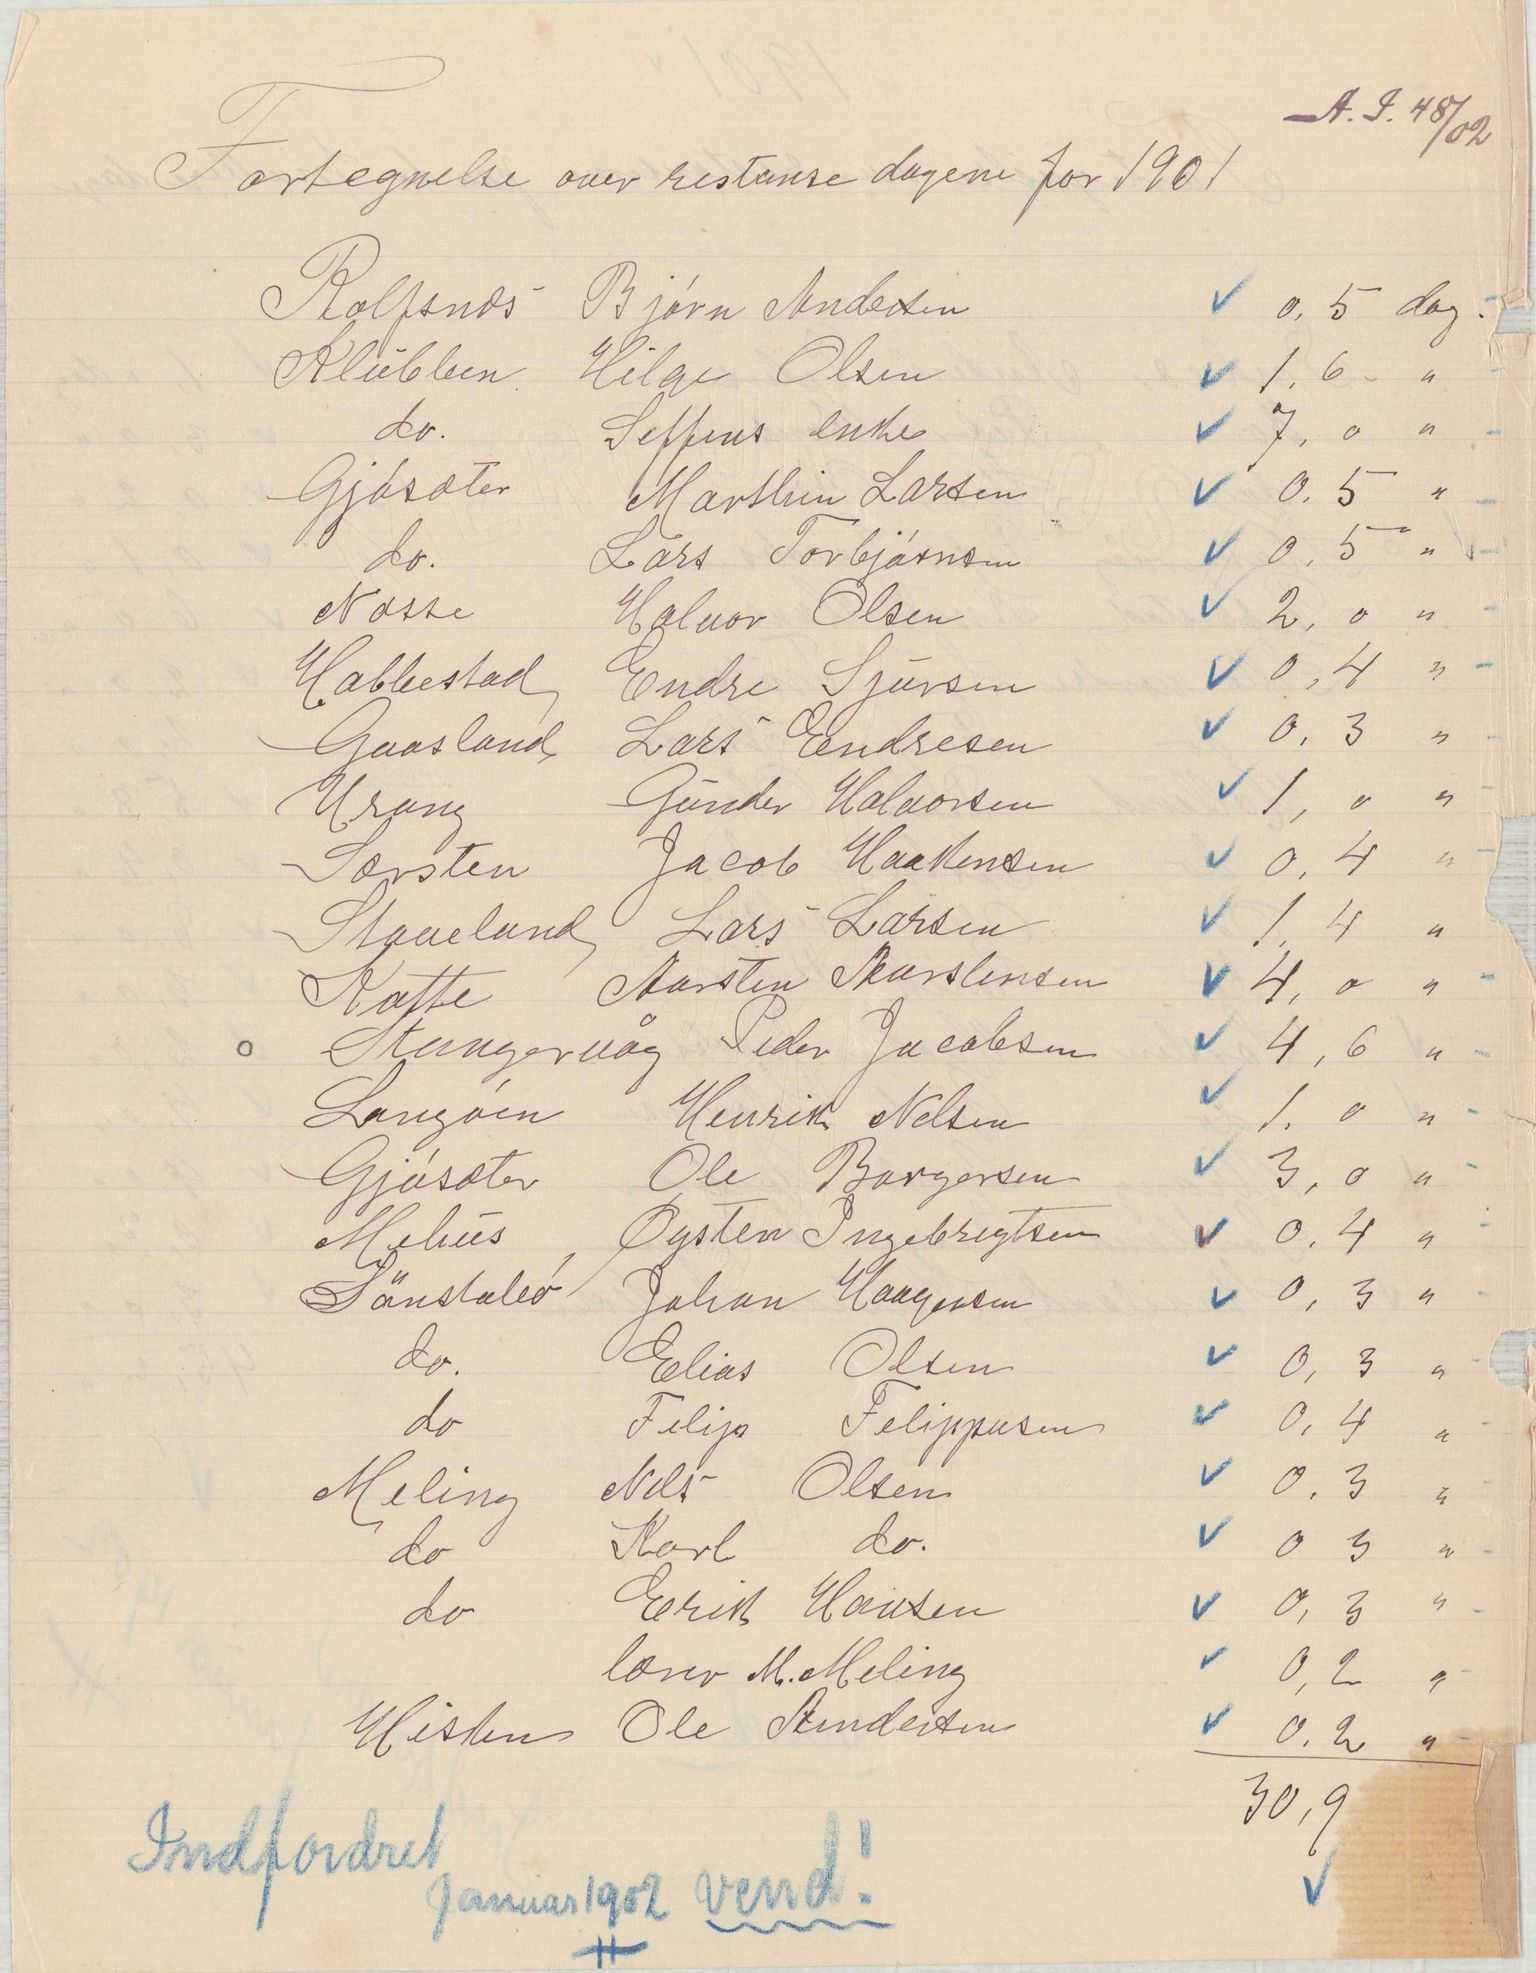 A. I. 48/02
Fortegnelse over restanse dagene for 1901
Rolfsnæs Bjørn Andersen 0,5 dag.
Klübben Hilge Olsen 1,6 "
do. Seffens enke 7,0 "
Gjøsæter Marthin Larsen 0,5 "
do. Lars Torbjørnsen 0,5 "
Næsse Halvor Olsen 2,0 "
Habbestad Endre Sjursen 0,4 "
Gaasland Lars Eendresen 0,3 "
Urang Günder Halvorsen 1,0 "
Særsten Jacob Haakensen 0,4 "
Staveland Lars Larsen 1,4 "
Katte Karsten Karstensen 4,0 "
o Stangervåg Peder Jacobsen 4,6 "
Langøen Henrik Nelsen 1,0 "
Gjøsæter Ole Borgersen 3,0 "
Mehüs Øysten Ingebregtsen 0,4 "
Sönstabø Johan Haagensen 0,3 "
do. Elias Olsen 0,3 "
do Felip Felippusen 0,4 "
Meling Nels Olsen 0,3 "
do Karl do. 0 3 "
do Eerik Hansen 0,3 "
lærer M. Meling 0,2 "
Hisken Ole Andersen 0,2 "
30,9
Indfordret
Januar 1902 vend!